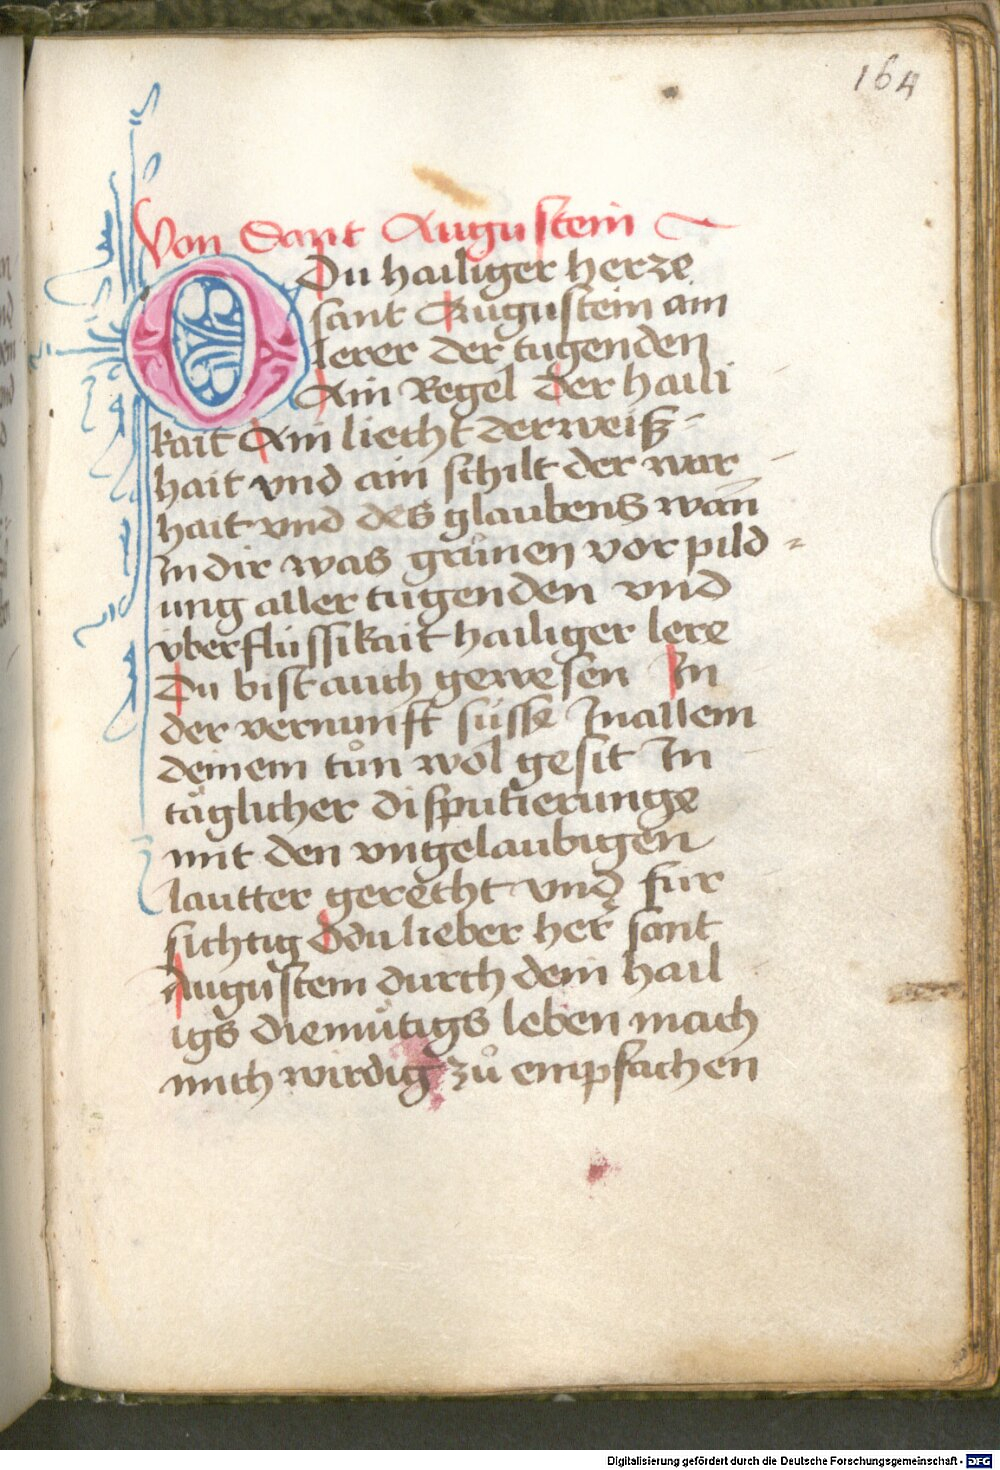 164
Von Sant Augustein
O Du hailiger herze
sant Augustein ain
lerer der tugenden
Ain Regel der haili
kait Ain liecht der weiß-
hait vnd ain schilt der war-
hait vnd des glaubens wan̄
In dir was grůnen vor pild-
ung aller tugenden vnd
v̈berflüssikait hailiger lere
Du bist auch gewesen In
der vernunfft süsse In allem
deinem tůn wol gesit In
täglicher disputierunge
mit den vngelaubigen
lautter gerecht vnd für
sichtig O du lieber her sant
Augustein durch dein hail
igs diemütigs leben mach
mich wirdig zů empfachen
Digitalisierung gefördert durch die Deutsche Forschungsgemeinschaft - DFG